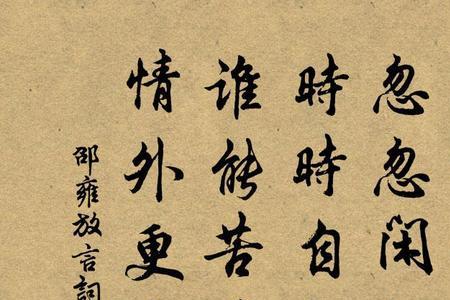 忽忽闲
時時自
谁能苦
情外更
邵雍放言詞